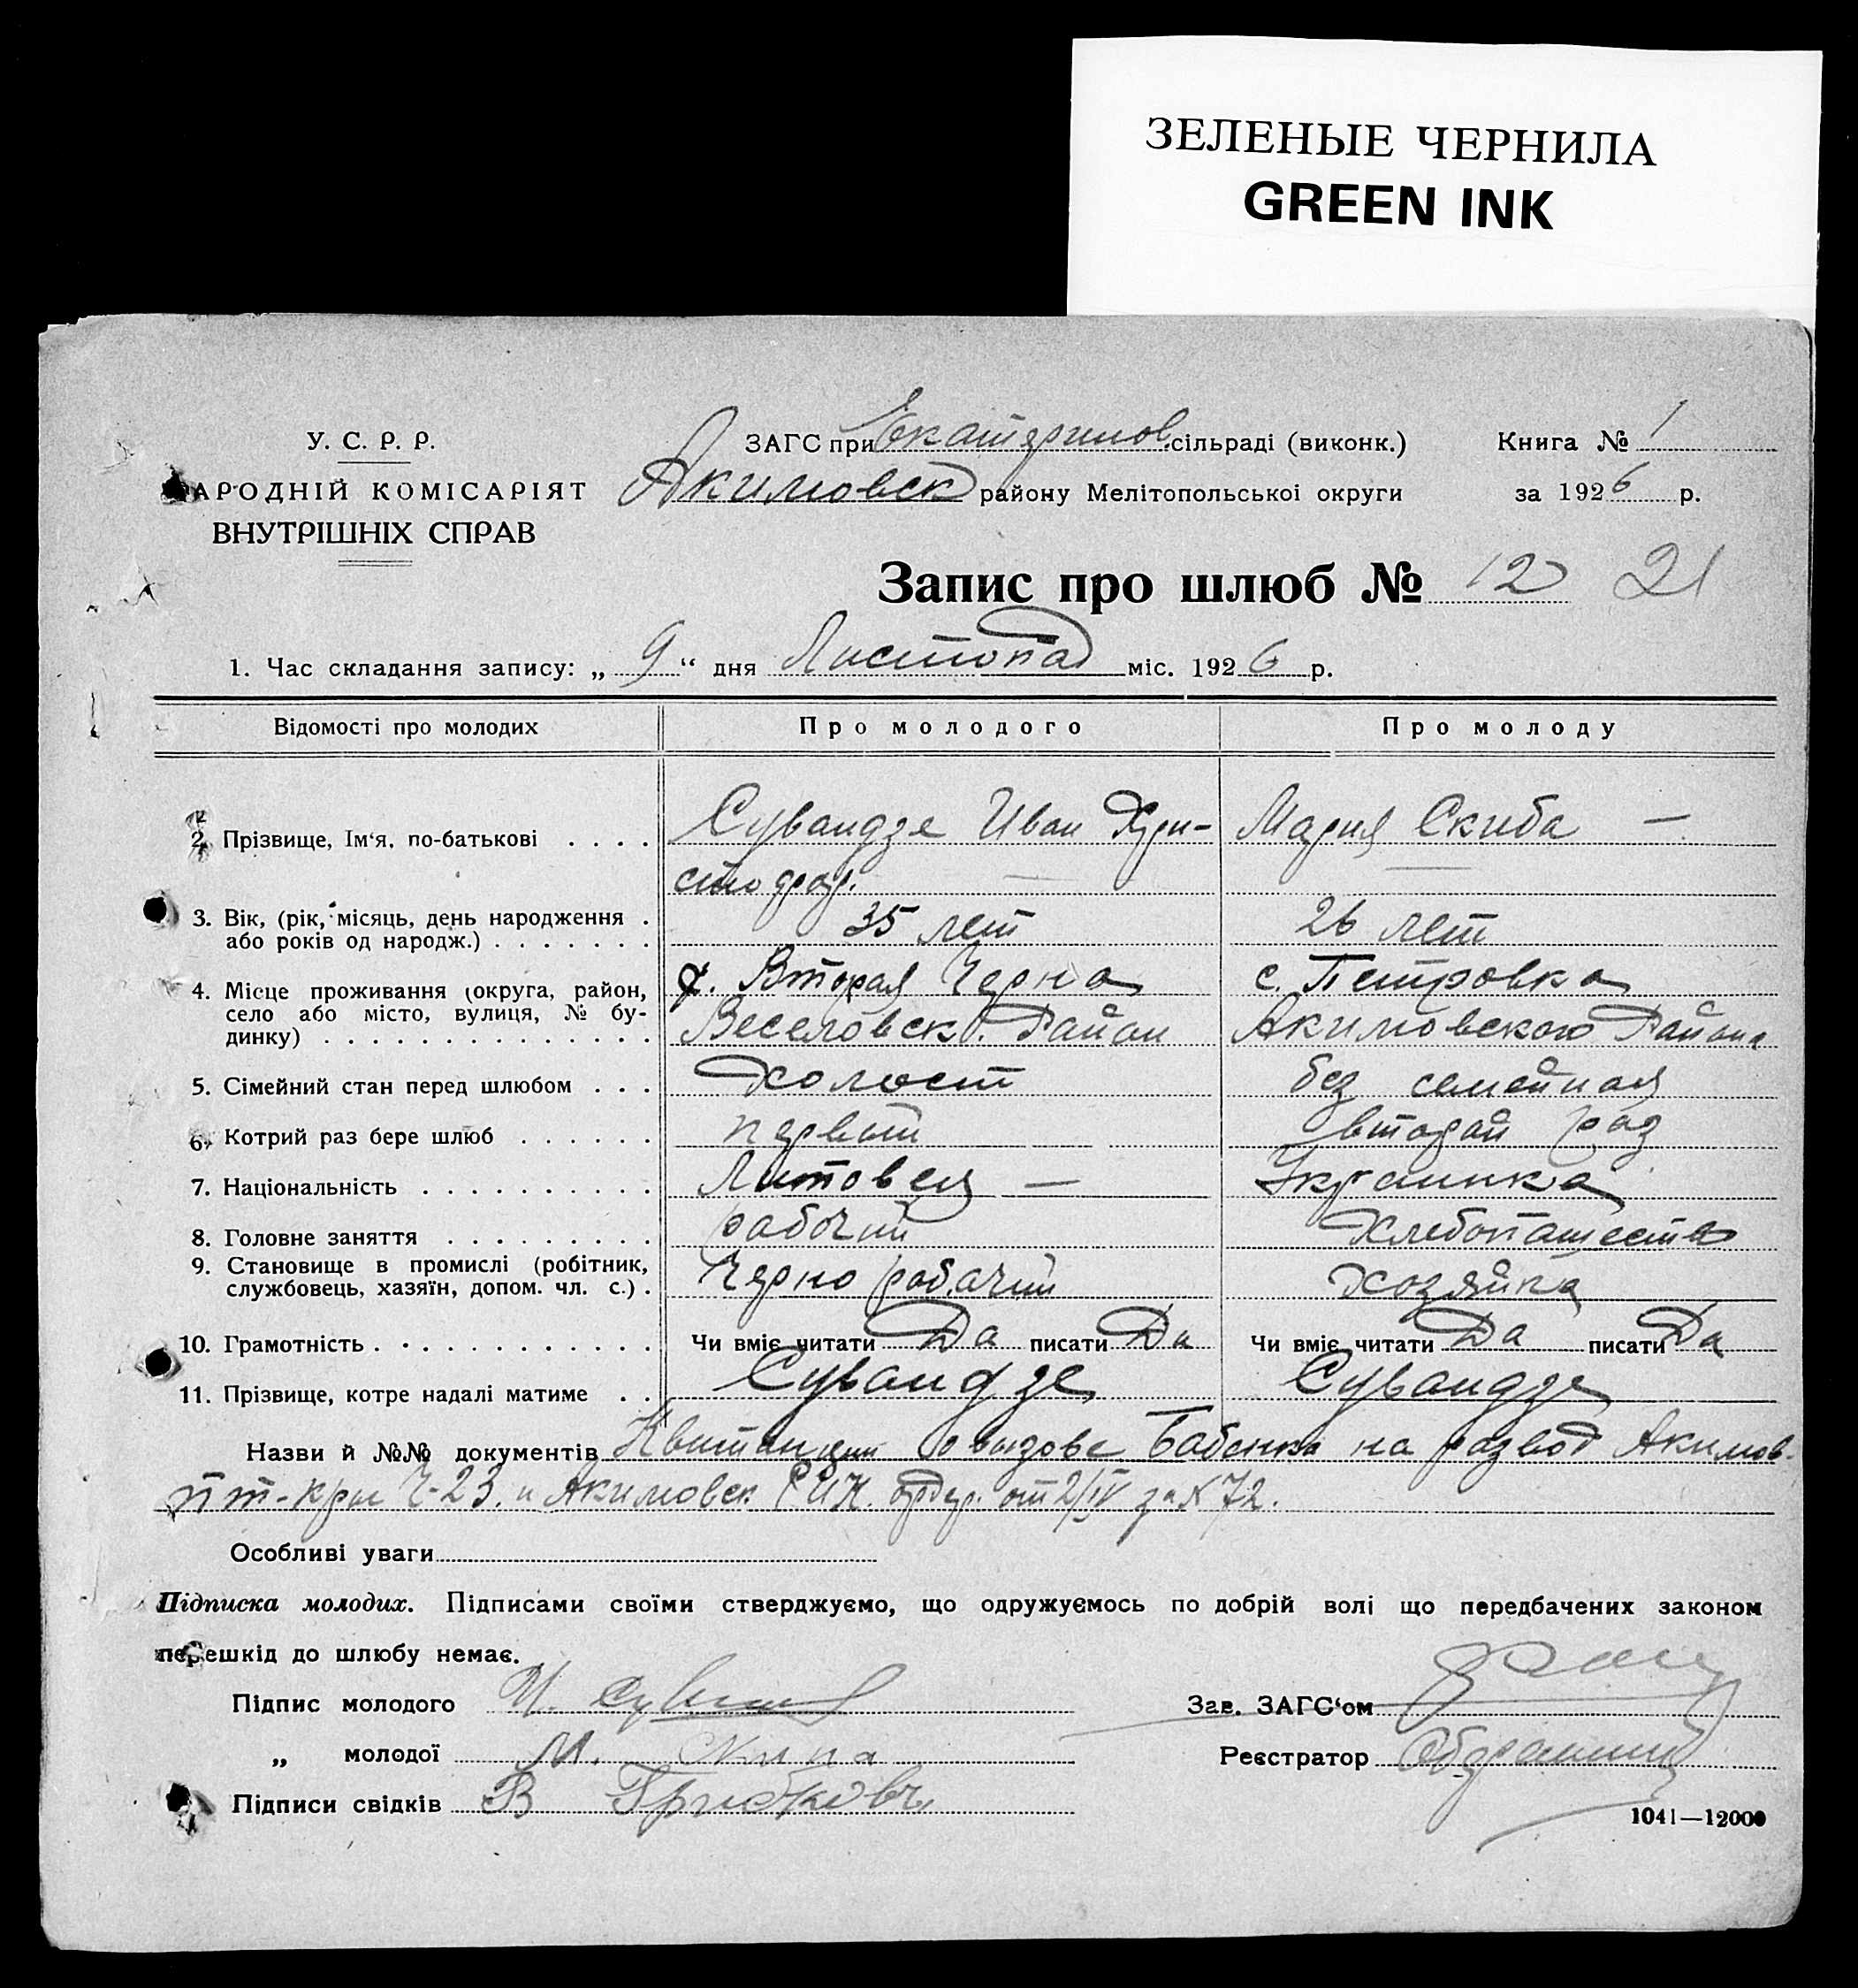 ЗЕЛЕНЫЕ ЧЕРНИЛА
GREEN INK
У. С. Р. Р.
АРОДНІЙ КОМІСАРІЯТ
ВНУТРІШНІХ СПРАВ
ЗАГС при Екатеринов. сільраді (виконк.)
Акимовск районy Мелітопольської округи
Книга № 1
за 1926 р.
Запис про шлюб № 12 21
1. Час складання запису: „ 9 “ дня Листопад міс. 1926 р.
Відомості про молодих Про молодого Про молоду
2. Прізвище, Ім‘я, по-батькові . . . . Сувандзе Иван Хри- Мария Скиба —
3. Вік, (рік, місяць, день народження . 35 лет 26 лет
або років од народж.) . . . . . . .
4. Місце проживання (округа, район, Вторая Черна с. Петровка
село або місто, вулиця, № бу- Веселовск. Район Акимовского Района
динку) . . . . . . . . . . . . . .
5. Сімейний стан перед шлюбом . . . Холост без семейная
6. Котрий раз бере шлюб . . . . . . первый второй раз
7. Національність . . . . . . . . . . — Украинка
8. Головне заняття . . . . . . . . . рабочий Хлебопашество
9. Становище в промислі (робітник, Черно рабочий Хозяйка
службовець, хазяїн, допом. чл. с.) .
10. Грамотність . . . . . . . . . . . . Чи вміє читати Да писати Да Чи вміє читати Да писати Да
11. Прізвище, котре надалі матиме . . Сувандзе Сувандзе
Назви й №№ документів Квитанции о вызове Бабенка на развод Акимов-
Ч-23. и Акимовск РИК. от 2/IV за N 72.
Особливі уваги
Підписка молодих. Підписами своїми стверджуємо, що одружуємось по добрій волі що передбачених законом
перешкід до шлюбу немає.
Підпис молодого И.
„ молодої М.
Підписи свідків В Грибковъ
Зав. ЗАГС‘ом
Реєстратор
1041—12000